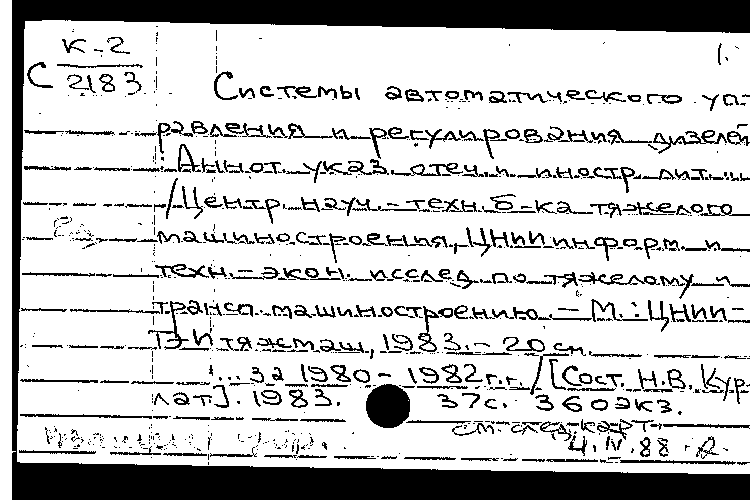 К-2 1.
С 2183
Системы автоматического уп-
равления и регулирования дизелей
: Аннот. указ. отеч. и иностр. лит. ...
/Центр. науч.-техн. б-ка тяжелого
машиностроения, ЦНИИ информ. и
техн.-экон. исслед. по тяжелому и
трансп. машиностроению. - М. : ЦНИИ-
ТЭИтяжмаш, 1983. - 20 см.
... за 1980-1982 г.г. / [Сост. Н.В. Кур-
лат]. 1983. 37с. 360экз.
см. след. карт.
4.IV.88